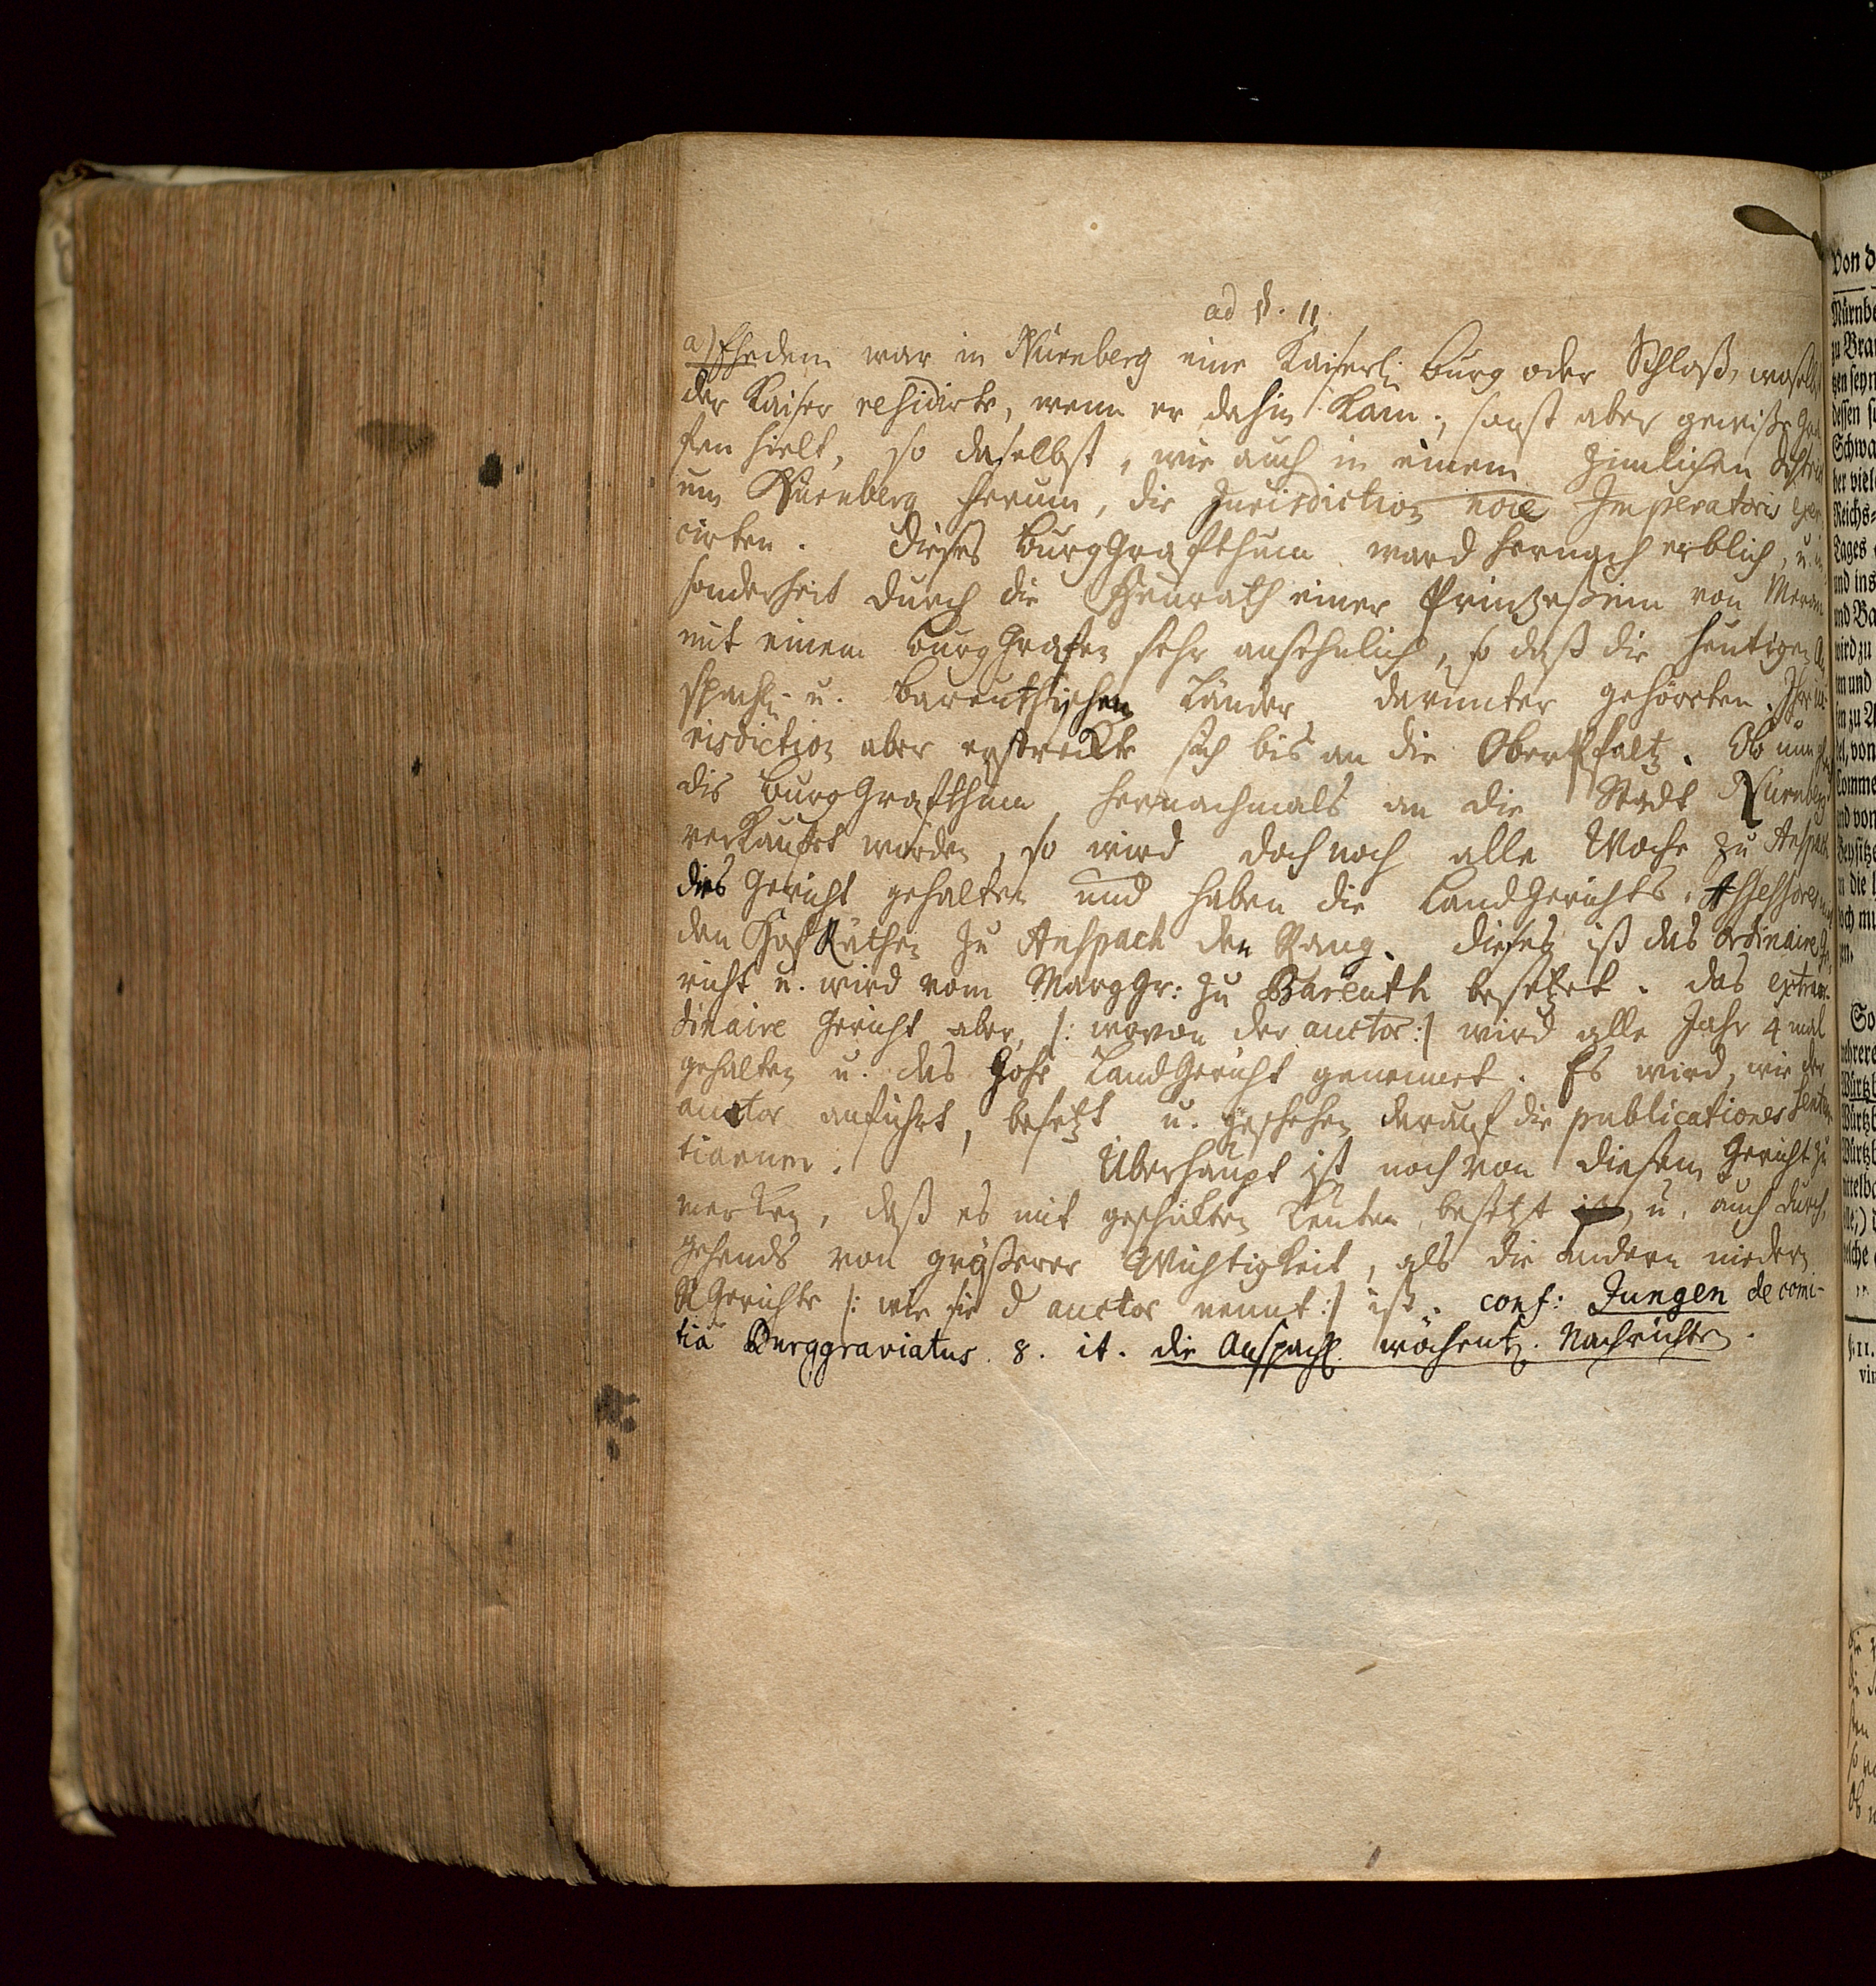 ad §. 11.
a) Ehedem war in Nürnberg eine Kaiserl. Burg oder Schloß, woselbst
der Kaiser residirte, wenn er dahin kam; sonst aber gewiße Gra
fen hielt, so daselbst, wie auch in einem zimlichen District
um Nürnberg herum, die Jurisdiction noie Imperatoris exer
cirten. Dieses BurgGrafthum ward hernach erblich, u. in
sonderheit durch die Heurath einer Printzeßein von Meran
mit einem BurgGrafen sehr ansehnlich, so daß die heutigen An
spach. u. Bareuthischen Länder darunter gehörten. Ihre Ju
risdiction aber erstreckte sich bis an die OberPfaltz. Ob nun
dis BurgGrafthum hernachmals an die Stadt Nürnberg
verkauft worden, so wird doch noch alle Woche zu Anspach
dies Gericht gehalten und haben die LandGerichts Assessores
den HofRäthen zu Anspach den Rang. Dieses ist das Ordinaire Ge
richt u. wird vom MargGr: zu Bareuth besetzet. Das extraor
dinaire Gericht aber, /: wovon der auctor :/ wird alle Jahr 4 mal
gehalten u. das Hohe LandGericht genennet. Es wird, wie der
auctor anführt, besetzt u. geschehen darauf die publicationes senten
tiarum. Überhaupt ist noch von diesem Gericht zu
merken, daß es mit geschickten Leuten besetzt ist, u. auch durch
gehends von größerer Wichtigkeit, als die andern niedern
RGerichte /: wie sie d auctor nennt :/ ist. conf: Jungen de comi-
tia Burggraviatus. 8. it. die Anspach. wöchentl. Nachrichten.
Von d
Nürnbe
zu Bra
dessen
Schwa
der viel
Reichs-
Tages
und ins
und Ba
wird zu
und
zu A
von
und von
Beysitze
die
Würtzb
Würtzb
Würtzb
elche
11.